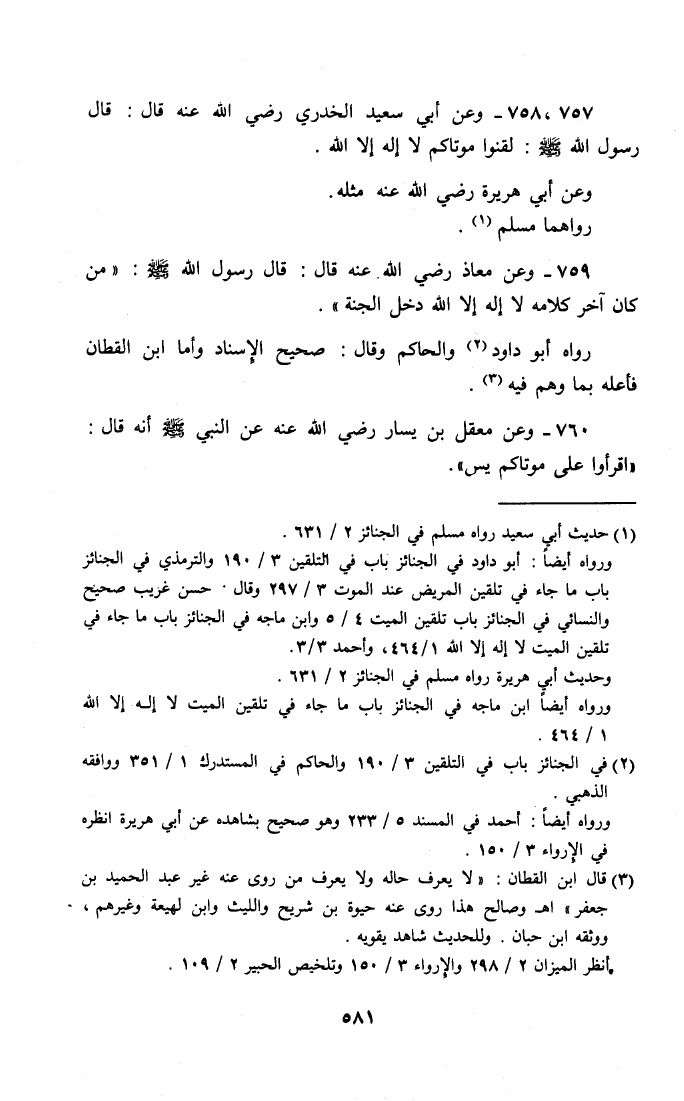 ٧٥٧ ، ٧٥٨ - وعن أبي سعيد الخدري رضي الله عنه قال : قال
رسول الله ﷺ : لقنوا موتاكم لا إله إلا الله .
وعن أبي هريرة رضي الله عنه مثله .
رواهما مسلم (١) .
٧٥٩ - وعن معاذ رضي الله عنه قال : قال رسول الله ﷺ : « من
كان آخر كلامه لا إله إلا الله دخل الجنة » .
رواه أبو داود (٢) والحاكم وقال : صحيح الإسناد وأما ابن القطان
فأعله بما وهم فيه (٣) .
٧٦٠ - وعن معقل بن يسار رضي الله عنه عن النبي ﷺ أنه قال :
«اقرأوا على موتاكم يس» .
(١) حديث أبي سعيد رواه مسلم في الجنائز ٢ / ٦٣١ .
ورواه أيضاً : أبو داود في الجنائز باب في التلقين ٣ / ١٩٠ والترمذي في الجنائز
باب ما جاء في تلقين المريض عند الموت ٣ / ٢٩٧ وقال · حسن غريب صحيح
والنسائي في الجنائز باب تلقين الميت ٤ / ٥ وابن ماجه في الجنائز باب ما جاء في
تلقين الميت لا إله إلا الله ٤٦٤/١ ، وأحمد ٣/٣ .
وحديث أبي هريرة رواه مسلم في الجنائز ٢ / ٦٣١ .
ورواه أيضاً ابن ماجه في الجنائز باب ما جاء في تلقين الميت لا إلـه إلا الله
١ / ٤٦٤ .
(٢) في الجنائز باب في التلقين ٣ / ١٩٠ والحاكم في المستدرك ١ / ٣٥١ ووافقه
الذهبي .
ورواه أيضاً : أحمد في المسند ٥ / ٢٣٣ وهو صحيح بشاهده عن أبي هريرة انظره
في الإرواء ٣ / ١٥٠ .
(٣) قال ابن القطان : « لا يعرف حاله ولا يعرف من روى عنه غير عبد الحميد بن
جعفر » اهـ وصالح هذا روى عنه حيوة بن شريح والليث وابن لهيعة وغيرهم ،
ووثقه ابن حبان . وللحديث شاهد يقويه .
أنظر الميزان ٢ / ٢٩٨ والإرواء ٣ / ١٥٠ وتلخيص الحبير ٢ / ١٠٩ .
٥٨١